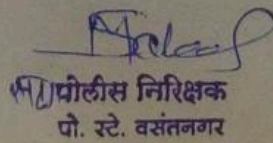 पोलीस निरिक्षक
पो. स्टे. वसंतनगर